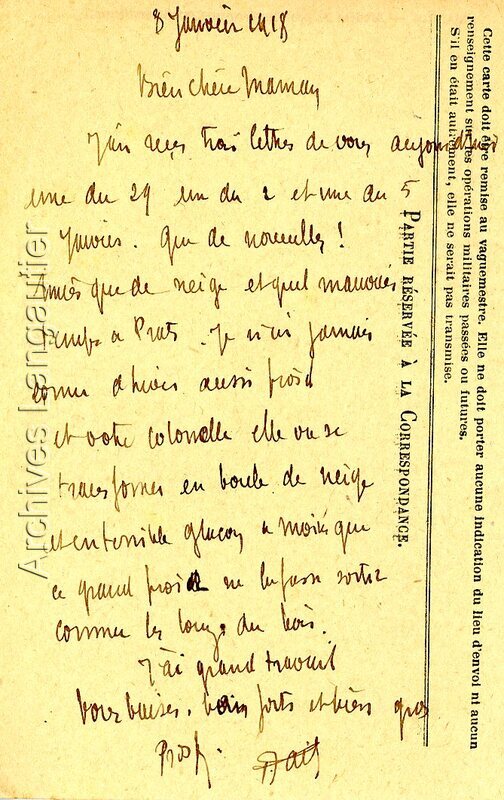 8 Janvier 1918
Bien chère Maman
J'ai reçu trois lettres de vous aujourd'hui
une du 29 un du 2 et une du 5
Janvier. Que de nouvelles !
que de neige et quel mauvais
temps a Prats. Je n'ai jamais
connu d'hiver aussi froid
et votre colonelle elle va se
transformer en boule de neige
et en terrible glaçon a moins que
ce grand froid ne la fasse sortir
comme les loups du bois.
J'ai grand travail
Vous baise bien forts et bien gros
PARTIE RÉSERVÉE À LA CORRESPONDANCE.
Cette carte doit être remise au vaguemestre. Elle ne doit porter aucune indication du lieu d'envoi ni aucun
renseignement sur les opérations militaires passées ou futures.
S'il en était autrement, elle ne serait pas transmise.
Archives Langautier